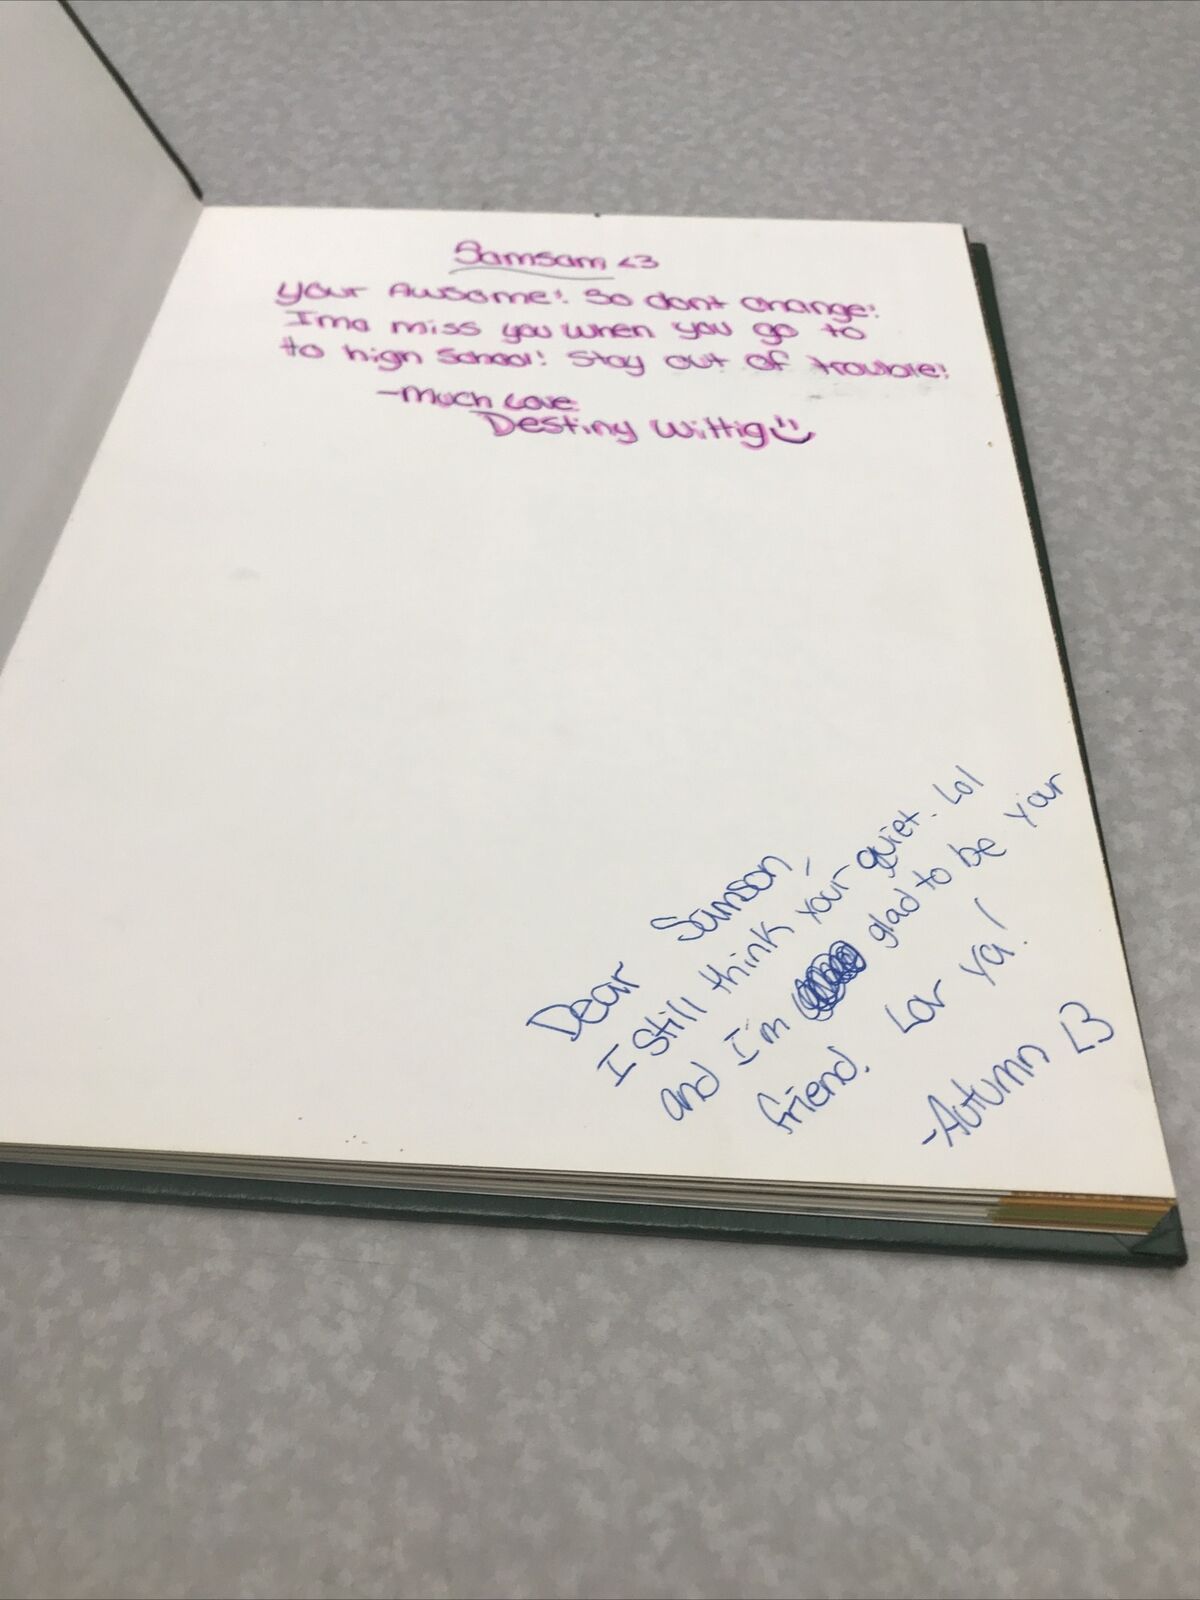 Samsam <3
Your Awsome! So dont change!
Ima miss you when you go to
to high School! Stay out of trouble!
-Much Love
Destiny Wittig
Dear Samson,
I still think your quiet. Lol
and I'm glad to be your
friend. Lov Ya!
-Autumn <3